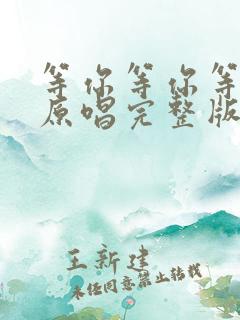 等你等你等
原唱完整版
王新建
未经同意禁止转载